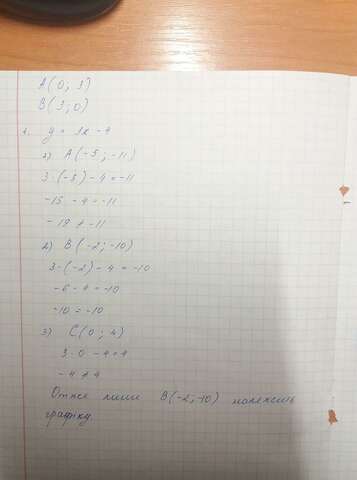 A(0; 3)
B(3; 0)
2. y = 3x - 4
1) A(-5; -11)
3·(-5) - 4 = -11
-15 - 4 = -11
-19 ≠ -11
2) B(-2; -10)
3·(-2) - 4 = -10
-6 - 4 = -10
-10 = -10
3) C(0; 4)
3·0 - 4 = 4
-4 ≠ 4
Отже лише B(-2; -10) належить
графіку.